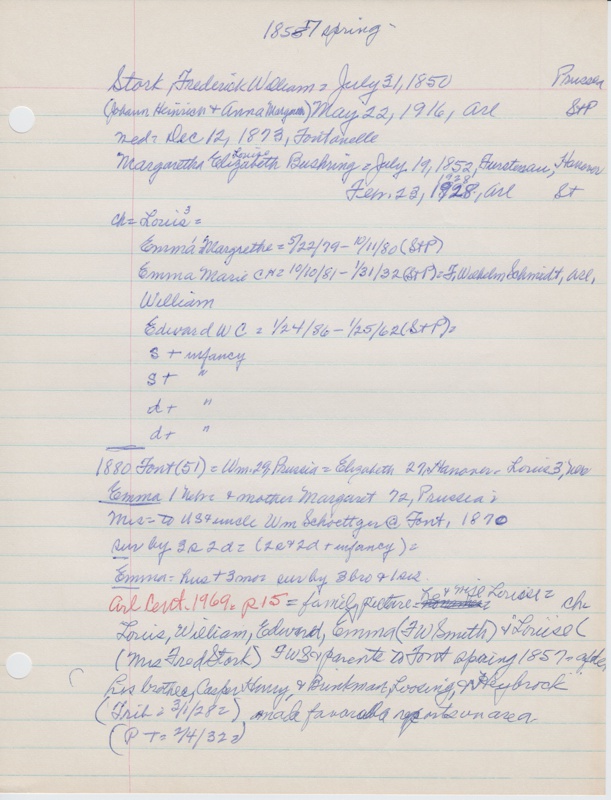 1857 spring -
Stork, Frederick William = July 31, 1850 Prussia
(Johann Heinrich & Anna Margaret) May 22, 1916, Arl S+P
med = Dec 12, 1873, Fontanelle
Margaretha Elizabeth Louise Bushring = July 19, 1852, Furstenau, Hanover
Feb. 23, 1928, 1928, Arl St
ch = Louis 3 =
Emma Margrethe = 5/22/79 - 10/11/80 (S+P)
Emma Marie CH = 10/10/81 - 1/31/32 (S+P) = F. Wilhelm Schmidt, Arl,
William
Edward WC = 1/24/86 - 1/25/62 (S+P) =
s + infancy
s + "
d + "
d + "
1880 Font (51) = Wm. 29, Prussia = Elizabeth 27, Hanover - Louis 3, Neb
Emma 1 Nebr. & mother Margaret 72, Prussia;
Mrs = to US & uncle Wm Schoettger @ Font, 1870
sur by 3s 2d = (2s & 2d + infancy) =
Emma = hus + 3 mo = sur by 3 bro & 1 sis
Arl Cent. 1969 = p 15 = family picture = Fre & wife Louise = ch
Louis, William, Edward, Emma (FW Smith) & Louise (
(Mrs Fred Stork) FWS & parents to Font spring 1857 = after
his brother, Casper Henry, & Brinkman, Loosing, & "Heybrock"
(Trib = 3/1/28 =) made favorable reports on area
(P T = 2/4/32 =)